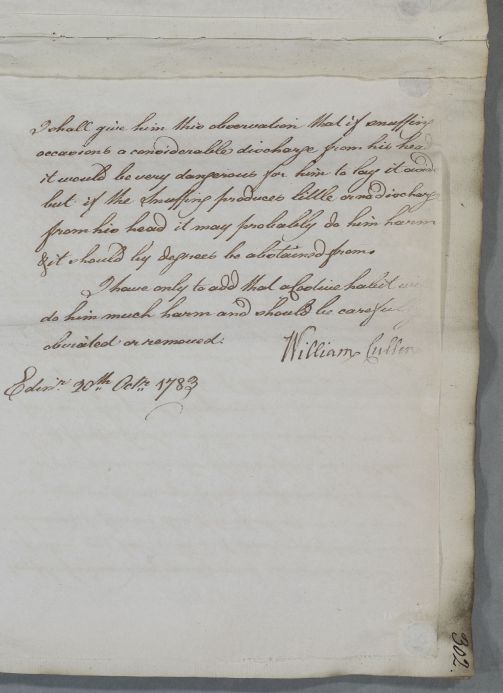 I shall give him this observation that if snuffing
occasions a considerable discharge from his head
it would be very dangerous for him to lay it aside
but if the Snuffing produces little or no discharge
from his head it may probably do him harm
& it should by degrees be abstained from.
I have only to add that a Costive habit will
do him much harm and should be carefully
obviated or removed.
William Cullen
Edinr. 20th. Octr. 1783
302.